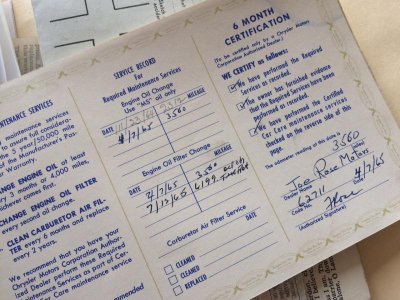 MAINTENANCE SERVICES
maintenance services
to ensure full consider-
the 5 year/50,000 mile
the Manufacturer's Pas-
Warranty.
CHANGE ENGINE OIL at least
every 3 months or 4,000 miles,
whichever comes first.
CHANGE ENGINE OIL FILTER
every second oil change.
CLEAN CARBURETOR AIR FIL-
TER every 6 months and replace
every 2 years.
We recommend that you have your
Chrysler Motors Corporation Author-
ized Dealer perform these Required
Maintenance Services as part of Cer-
Car Care maintenance service
SERVICE RECORD
For
Required Maintenance Services
Engine Oil Change
Use "MS" oil only
DATE 11/23/64 2312 MILEAGE
4/7/65 3560
Engine Oil Filter Change
DATE MILEAGE
4/7/65 3560
7/12/65 6199
Carburetor Air Filter Service
CLEANED
CLEANED
REPLACED
6 MONTH
CERTIFICATION
(To be certified only by a Chrysler Motors
Corporation Authorized Dealer.)
WE CERTIFY as follows:
We have performed the Required
Services as recorded.
The owner has furnished evidence
that the Required Services have been
performed as recorded.
We have performed the Certified
Car Care maintenance services
checked on the reverse side of
this page.
The odometer reading at this date is 3560
Joe Rose Motors
Dealer Name
62711 4/7/65
Code No. Date
(Authorized Signature)